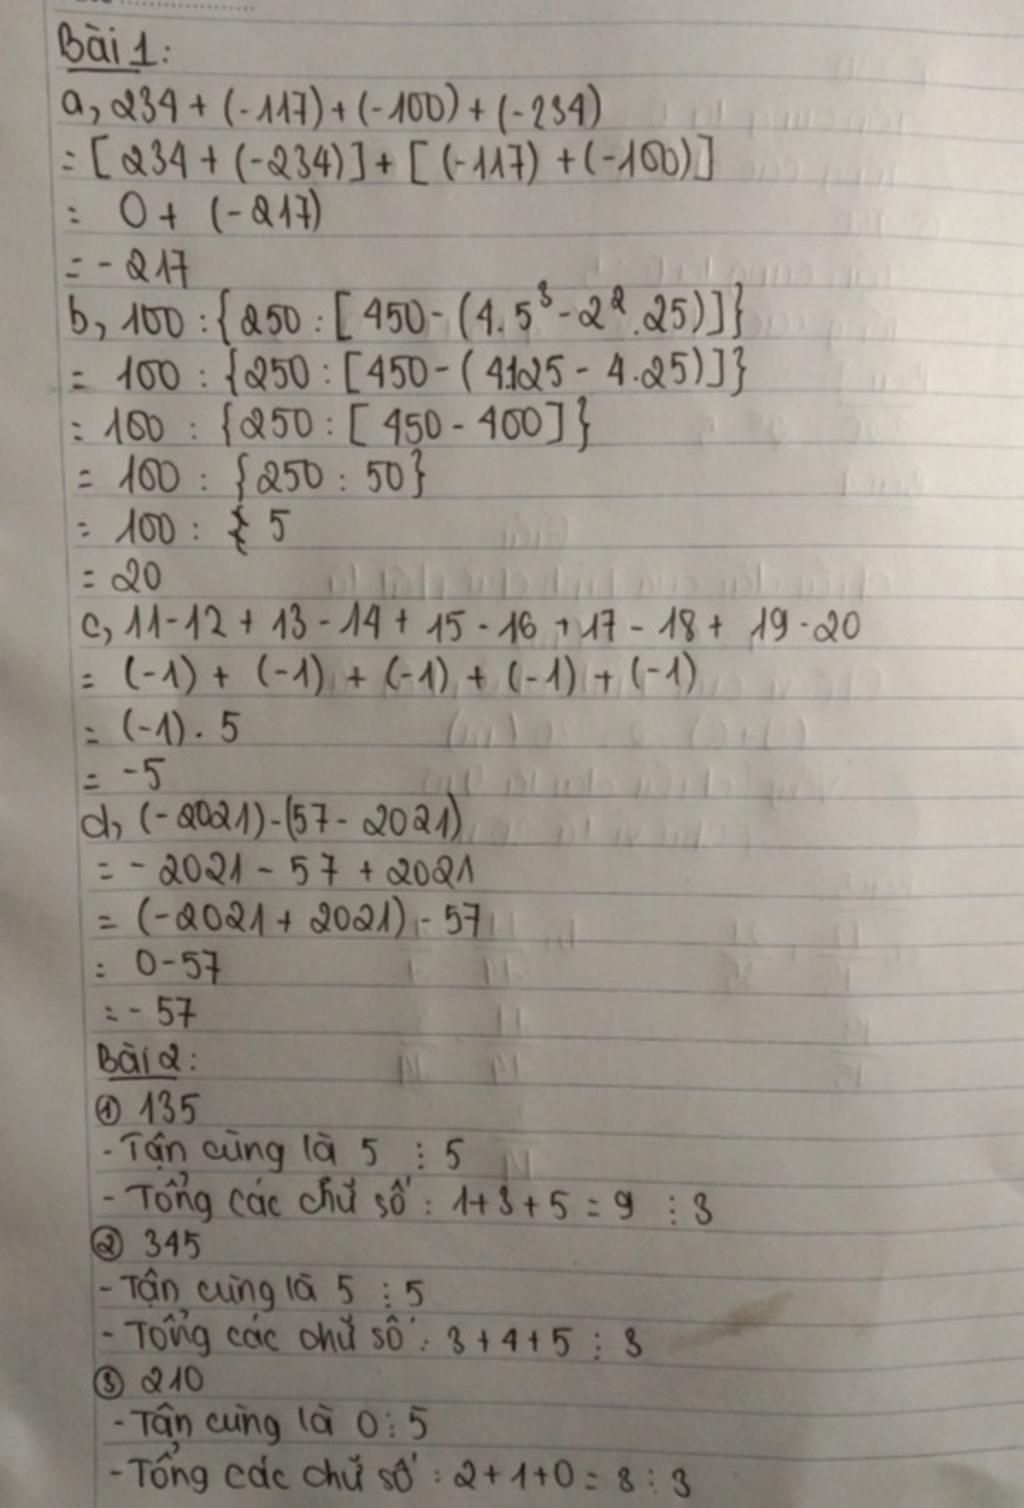 Bài 1:
a, 234 + (-117) + (-100) + (-234)
= [ 234 + (-234)] + [ (-117) + (-100)]
= 0 + (-217)
= - 217
b, 100 : { 250 : [ 450 - (4. 5³ - 2² . 25)]}
= 100 : {250 : [450 - ( 4.125 - 4.25)]}
= 100 : {250 : [ 450 - 400]}
= 100 : {250 : 50}
= 100 : 5
= 20
c, 11-12 + 13 - 14 + 15 - 16 + 17 - 18 + 19 - 20
= (-1) + (-1) + (-1) + (-1) + (-1)
= (-1) . 5
= -5
d, (-2021) - (57 - 2021)
= - 2021 - 57 + 2021
= (-2021 + 2021) - 57
= 0-57
= - 57
Bài 2:
① 135
- Tận cùng là 5 ⋮ 5
- Tổng các chữ số : 1+3+5 = 9 ⋮ 3
② 345
- Tận cùng là 5 ⋮ 5
- Tổng các chữ số : 3 + 4 + 5 ⋮ 3
③ 210
- Tận cùng là 0 ⋮ 5
- Tổng các chữ số : 2 + 1 + 0 = 3 ⋮ 3